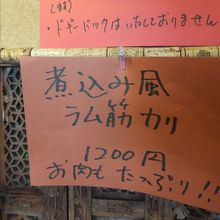 します)
・ドギーバックはいたしておりません
煮込み風
ラム筋カリ
1200円
お肉もたっぷり!!